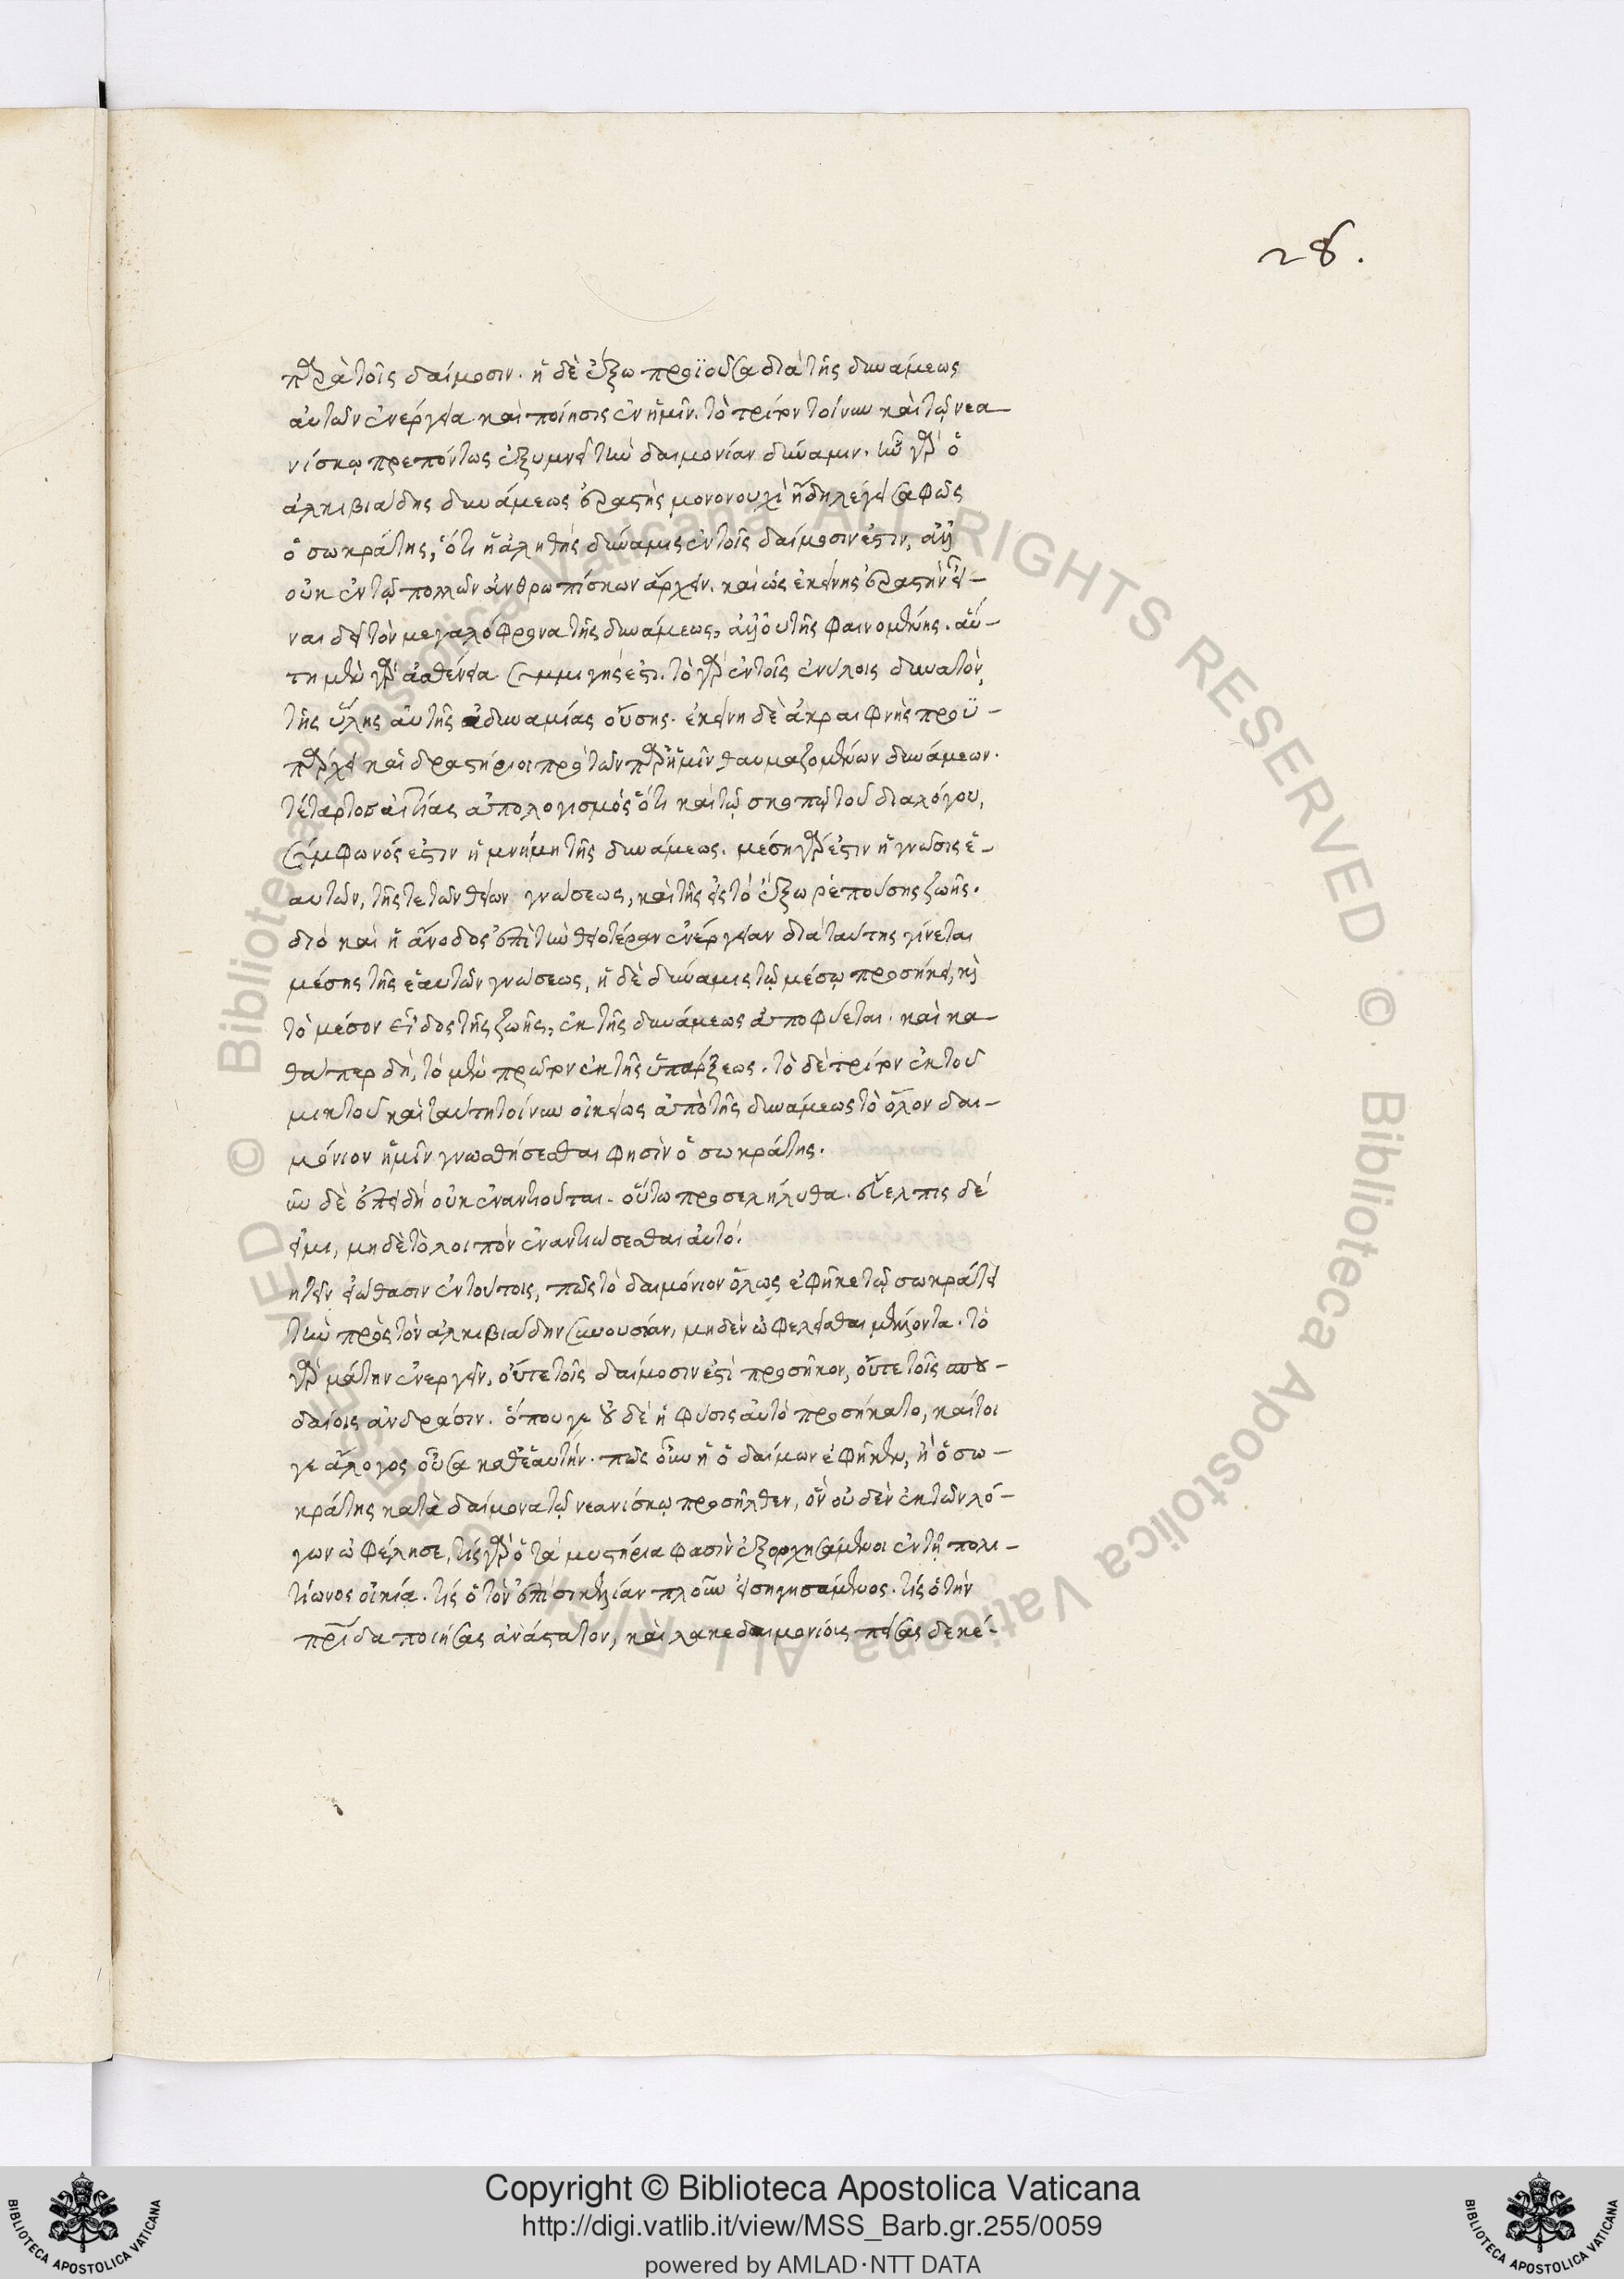 28.
παρὰ τοῖς δαίμοσιν. ἡ δὲ ἔξω προϊοῦσα διὰ τῆς δυνάμεως
αὐτῶν ἐνέργεια καὶ ποίησις ἐν ἡμῖν. τὸ τρίτον τοίνυν καὶ τῷ νεα-
νίσκῳ πρεπόντως ἐξυμνεῖ τὴν δαιμονίαν δύναμιν. ἦν γὰρ ὁ
ἀλκιβιάδης δυνάμεως ἐραστὴς μονονουχὶ ἤδη λέγει σαφῶς
ὁ σωκράτης, ὅτι ἡ ἀληθὴς δύναμις ἐν τοῖς δαίμοσιν ἐστιν, ἀλλ'
οὐκ ἐν τῷ πολλῶν ἀνθρωπίσκων ἄρχειν. καὶ ὡς ἐκείνης ἐραστὴν εἶ-
ναι δεῖ τὸν μεγαλόφρονα τῆς δυνάμεως, ἀλλ' οὐ τῆς φαινομένης. αὕ-
τη μὲν γὰρ ἀσθένεια συμμιγής ἐστι. τὸ γὰρ ἐν τοῖς ἐνύλοις δυνατὸν,
τῆς ὕλης αὐτῆς ἀδυναμίας οὔσης. ἐκείνη δὲ ἀκραιφνὴς προϋ-
πάρχει καὶ δραστήριοι πρὸ τῶν παρ' ἡμῖν θαυμαζομένων δυνάμεων.
τέταρτος αἰτίας ἀπολογισμὸς ὅτι καὶ τῷ σκοπῷ τοῦ διαλόγου,
σύμφωνός ἐστιν ἡ μνήμη τῆς δυνάμεως. μέση γάρ ἐστιν ἡ γνῶσις ἑ-
αυτῶν, τῆς τε τῶν θείων γνώσεως, καὶ τῆς εἰς τὸ ἔξω ῥεπούσης ζωῆς.
διὸ καὶ ἡ ἄνοδος ἐπὶ τὴν θειοτέραν ἐνέργειαν διὰ ταύτης γίνεται
μέσης τῆς ἑαυτῶν γνώσεως, ἡ δὲ δύναμις τῷ μέσῳ προσήκει, καὶ
τὸ μέσον εἶδος τῆς ζωῆς, ἐκ τῆς δυνάμεως ἀποφύεται. καὶ κα-
θάπερ δὴ, τὸ μὲν πρῶτον ἐκ τῆς ὑπάρξεως. τὸ δὲ τρίτον ἐκ τοῦ
μικτοῦ καὶ ταύτῃ τοίνυν οἰκείως ἀπὸ τῆς δυνάμεως τὸ ὅλον δαι-
μόνιον ἡμῖν γνωσθήσεσθαι φησὶν ὁ σωκράτης.
νῦν δὲ ἐπειδὴ οὐκ ἐναντιοῦται. οὕτω προσελήλυθα. εὔελπις δέ
εἰμι, μηδὲ τὸ λοιπὸν ἐναντιώσεσθαι αὐτό.
ζητεῖν εἰώθασιν ἐν τούτοις, πῶς τὸ δαιμόνιον ὅλως ἐφῆκε τῷ σωκράτει
τὴν πρὸς τὸν ἀλκιβιάδην συνουσίαν, μηδὲν ὠφελεῖσθαι μέλλοντα. τὸ
γὰρ μάτην ἐνεργεῖν, οὔτε τοῖς δαίμοσιν ἐστὶ προσῆκον, οὔτε τοῖς σπου-
δαίοις ἀνδράσιν. ὅπου γε οὐδὲ ἡ φύσις αὐτὸ προσήκατο, καίτοι
γε ἄλογος οὖσα καθ' ἑαυτήν. πῶς οὖν ἢ ὁ δαίμων ἐφῆκεν, ἢ ὁ σω-
κράτης κατὰ δαίμονα τῷ νεανίσκῳ προσῆλθεν, ὃν οὐδὲν ἐκ τῶν λό-
γων ὠφέλησε, τίς γὰρ ὁ τὰ μυστήρια φασὶν ἐξορχησάμενοι ἐν τῇ πολι-
τίωνος οἰκίᾳ. τίς ὁ τὸν ἐπὶ σικελίαν πλοῦν εἰσηγησάμενος. τίς ὁ τὴν
πατρίδα ποιήσας ἀνάστατον, καὶ λακεδαιμονίοις πείσας δεκέ-